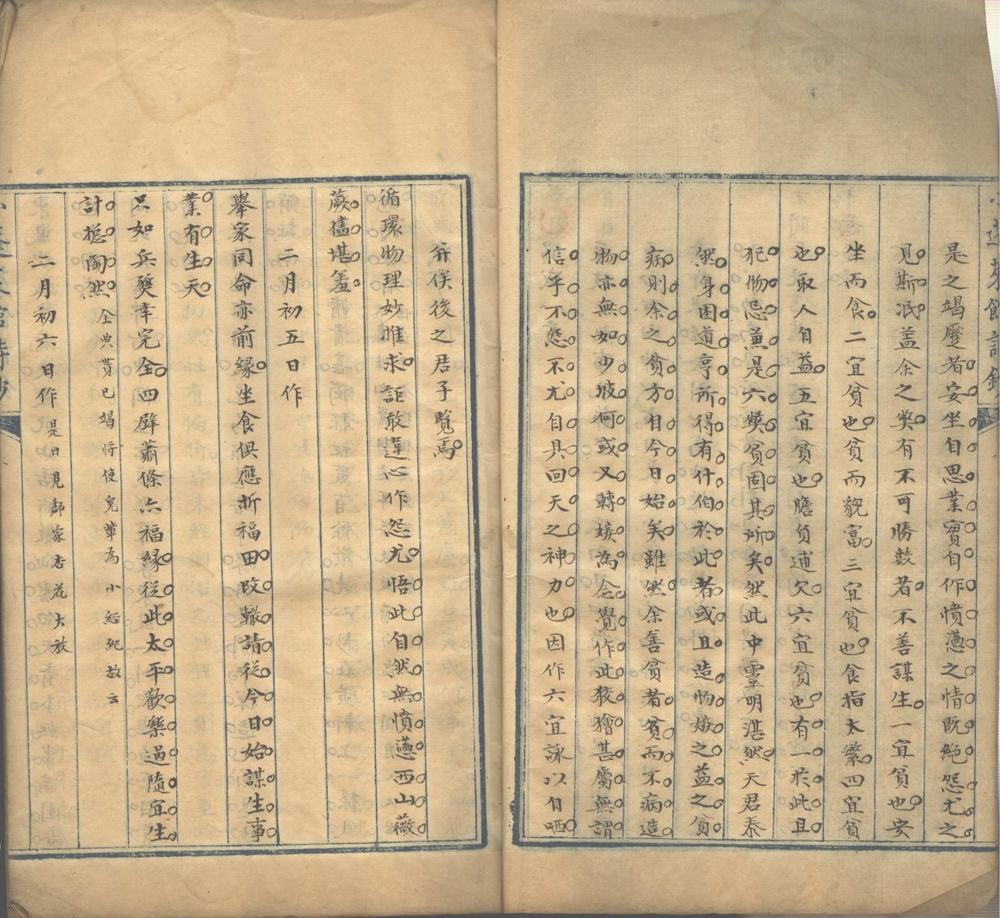 是之竭蹙者安坐自思業實自作憤懣之情既絕怨尤之
見斯泯蓋余之獘有不可勝數者不善謀生一宜貧也安
坐而食二宜貧也貧而貌富三宜貧也食指太繁四宜貧
也取人自益五宜貧也膽負逋欠六宜貧也有一於此且
犯物忌兼是六獘貧固其所矣然此中靈明湛然天君泰
然身困道亨所得有什伯於此者或且造物嫉之益之貧
病則余之貧方自今日始矣雖然余善貧者貧而不病造
物亦無如少坡何或又轉嫉為念覺作此狡獪甚屬無謂
信乎不怨不尤自具回天之神力也因作六宜詠以自哂
并俟後之君子覽焉
循環物理妙推求詎敢違心作怨尤悟此自然無憤懣西山薇
蕨儘堪羞
二月初五日作
舉家同命亦前緣坐食俱應折福田改轍請從今日始謀生事
業有生天
只如兵燹幸完全四壁蕭條亦福緣從此太平歡樂過隨宜生
計穩陶然 余典貰已竭將使兒輩為小經紀故云
二月初六日作 是日見鄰家杏花大放